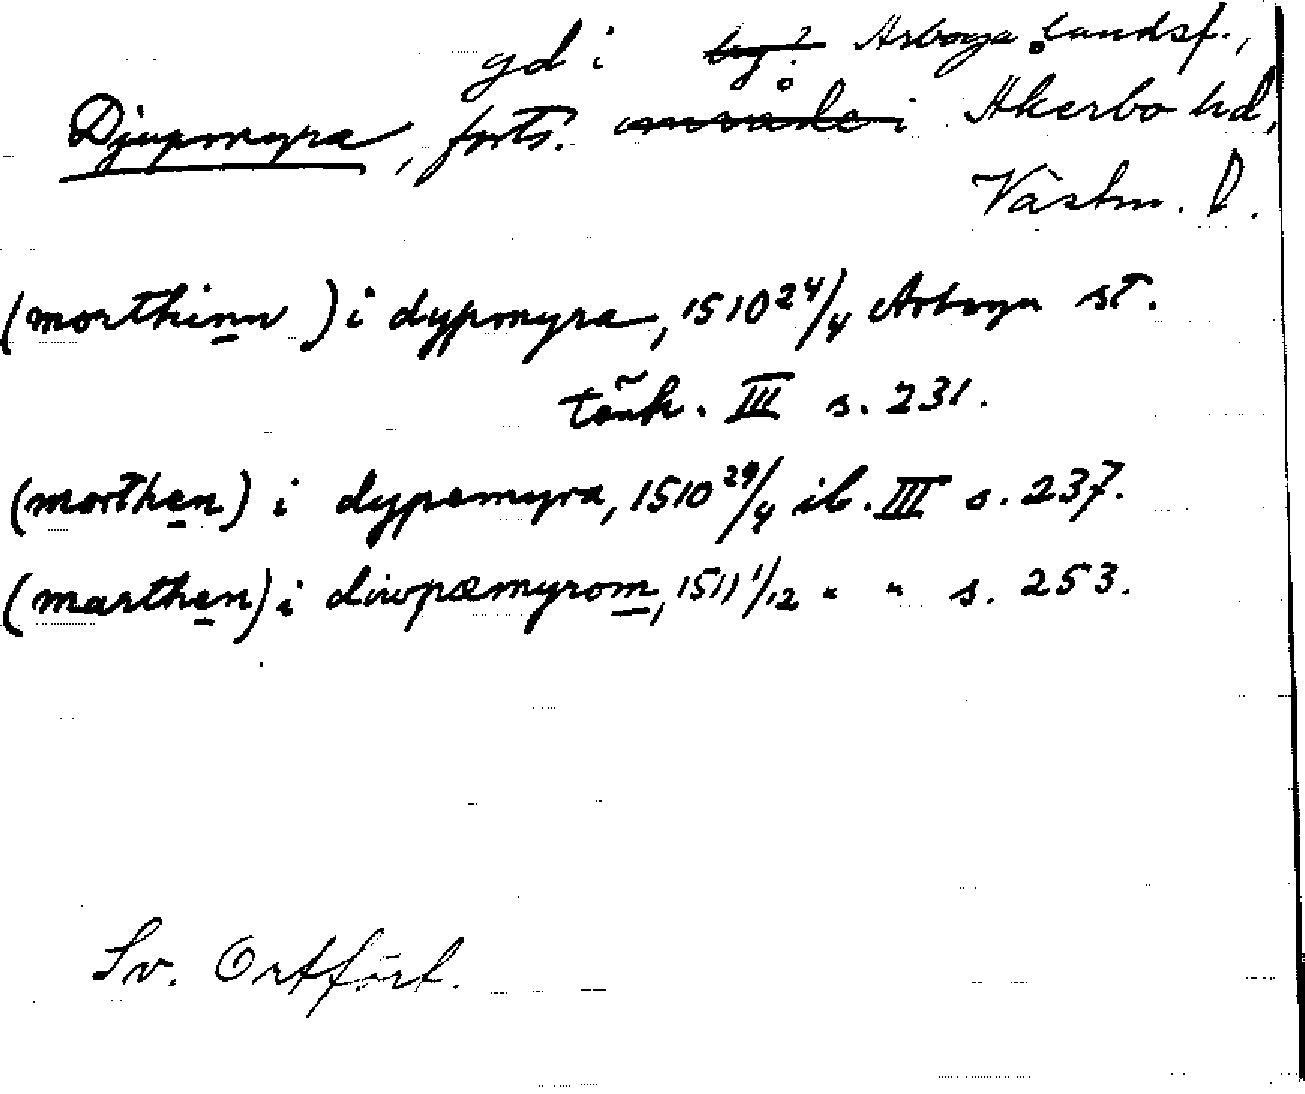 gd i by i Arboga landsf.,
Djupmyra, forts. område i Åkerbo hd,
Västm. l.
(morthinn) i dypmyra, 1510 24/4 Arboga st.
tänk. III s. 231.
(morthen) i dypemyra, 1510 29/4 ib. III s. 237.
(marthen) i diwpæmyrom, 1511 1/12 " " s. 253.
Sv. Ortfört.